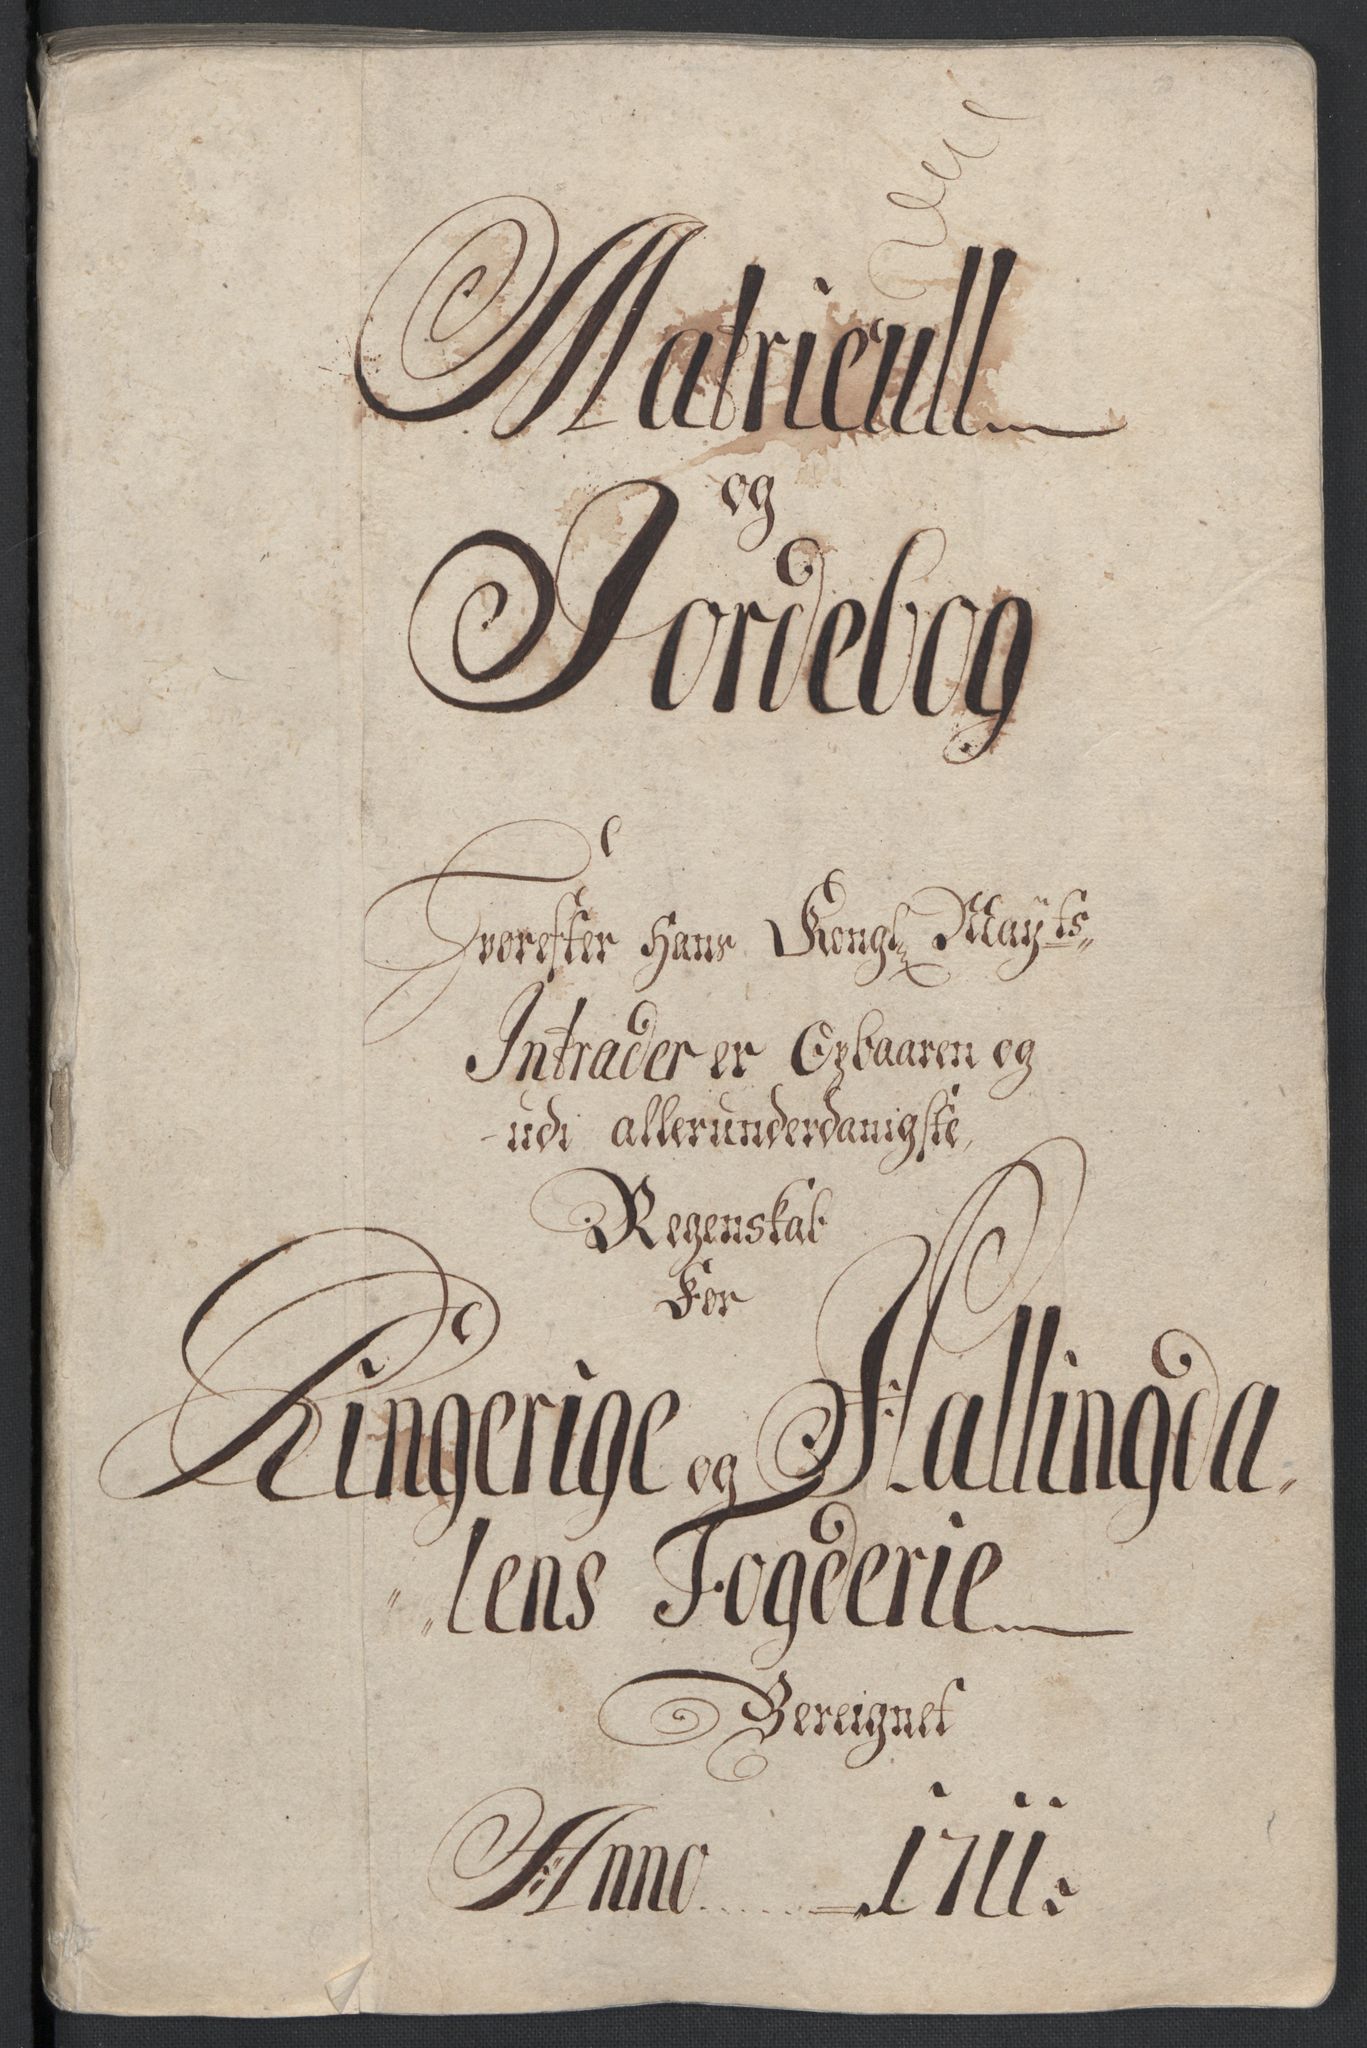 Matricull
og
Jordebog
Hvorefter Hans Kongl: Mayts
Intrader er Oebaaren og
udi allerunderdanigste
Regenskab
For
Ringerige og Hallingda,
,,lens Fogderie
Bereignet
Anno 1711.